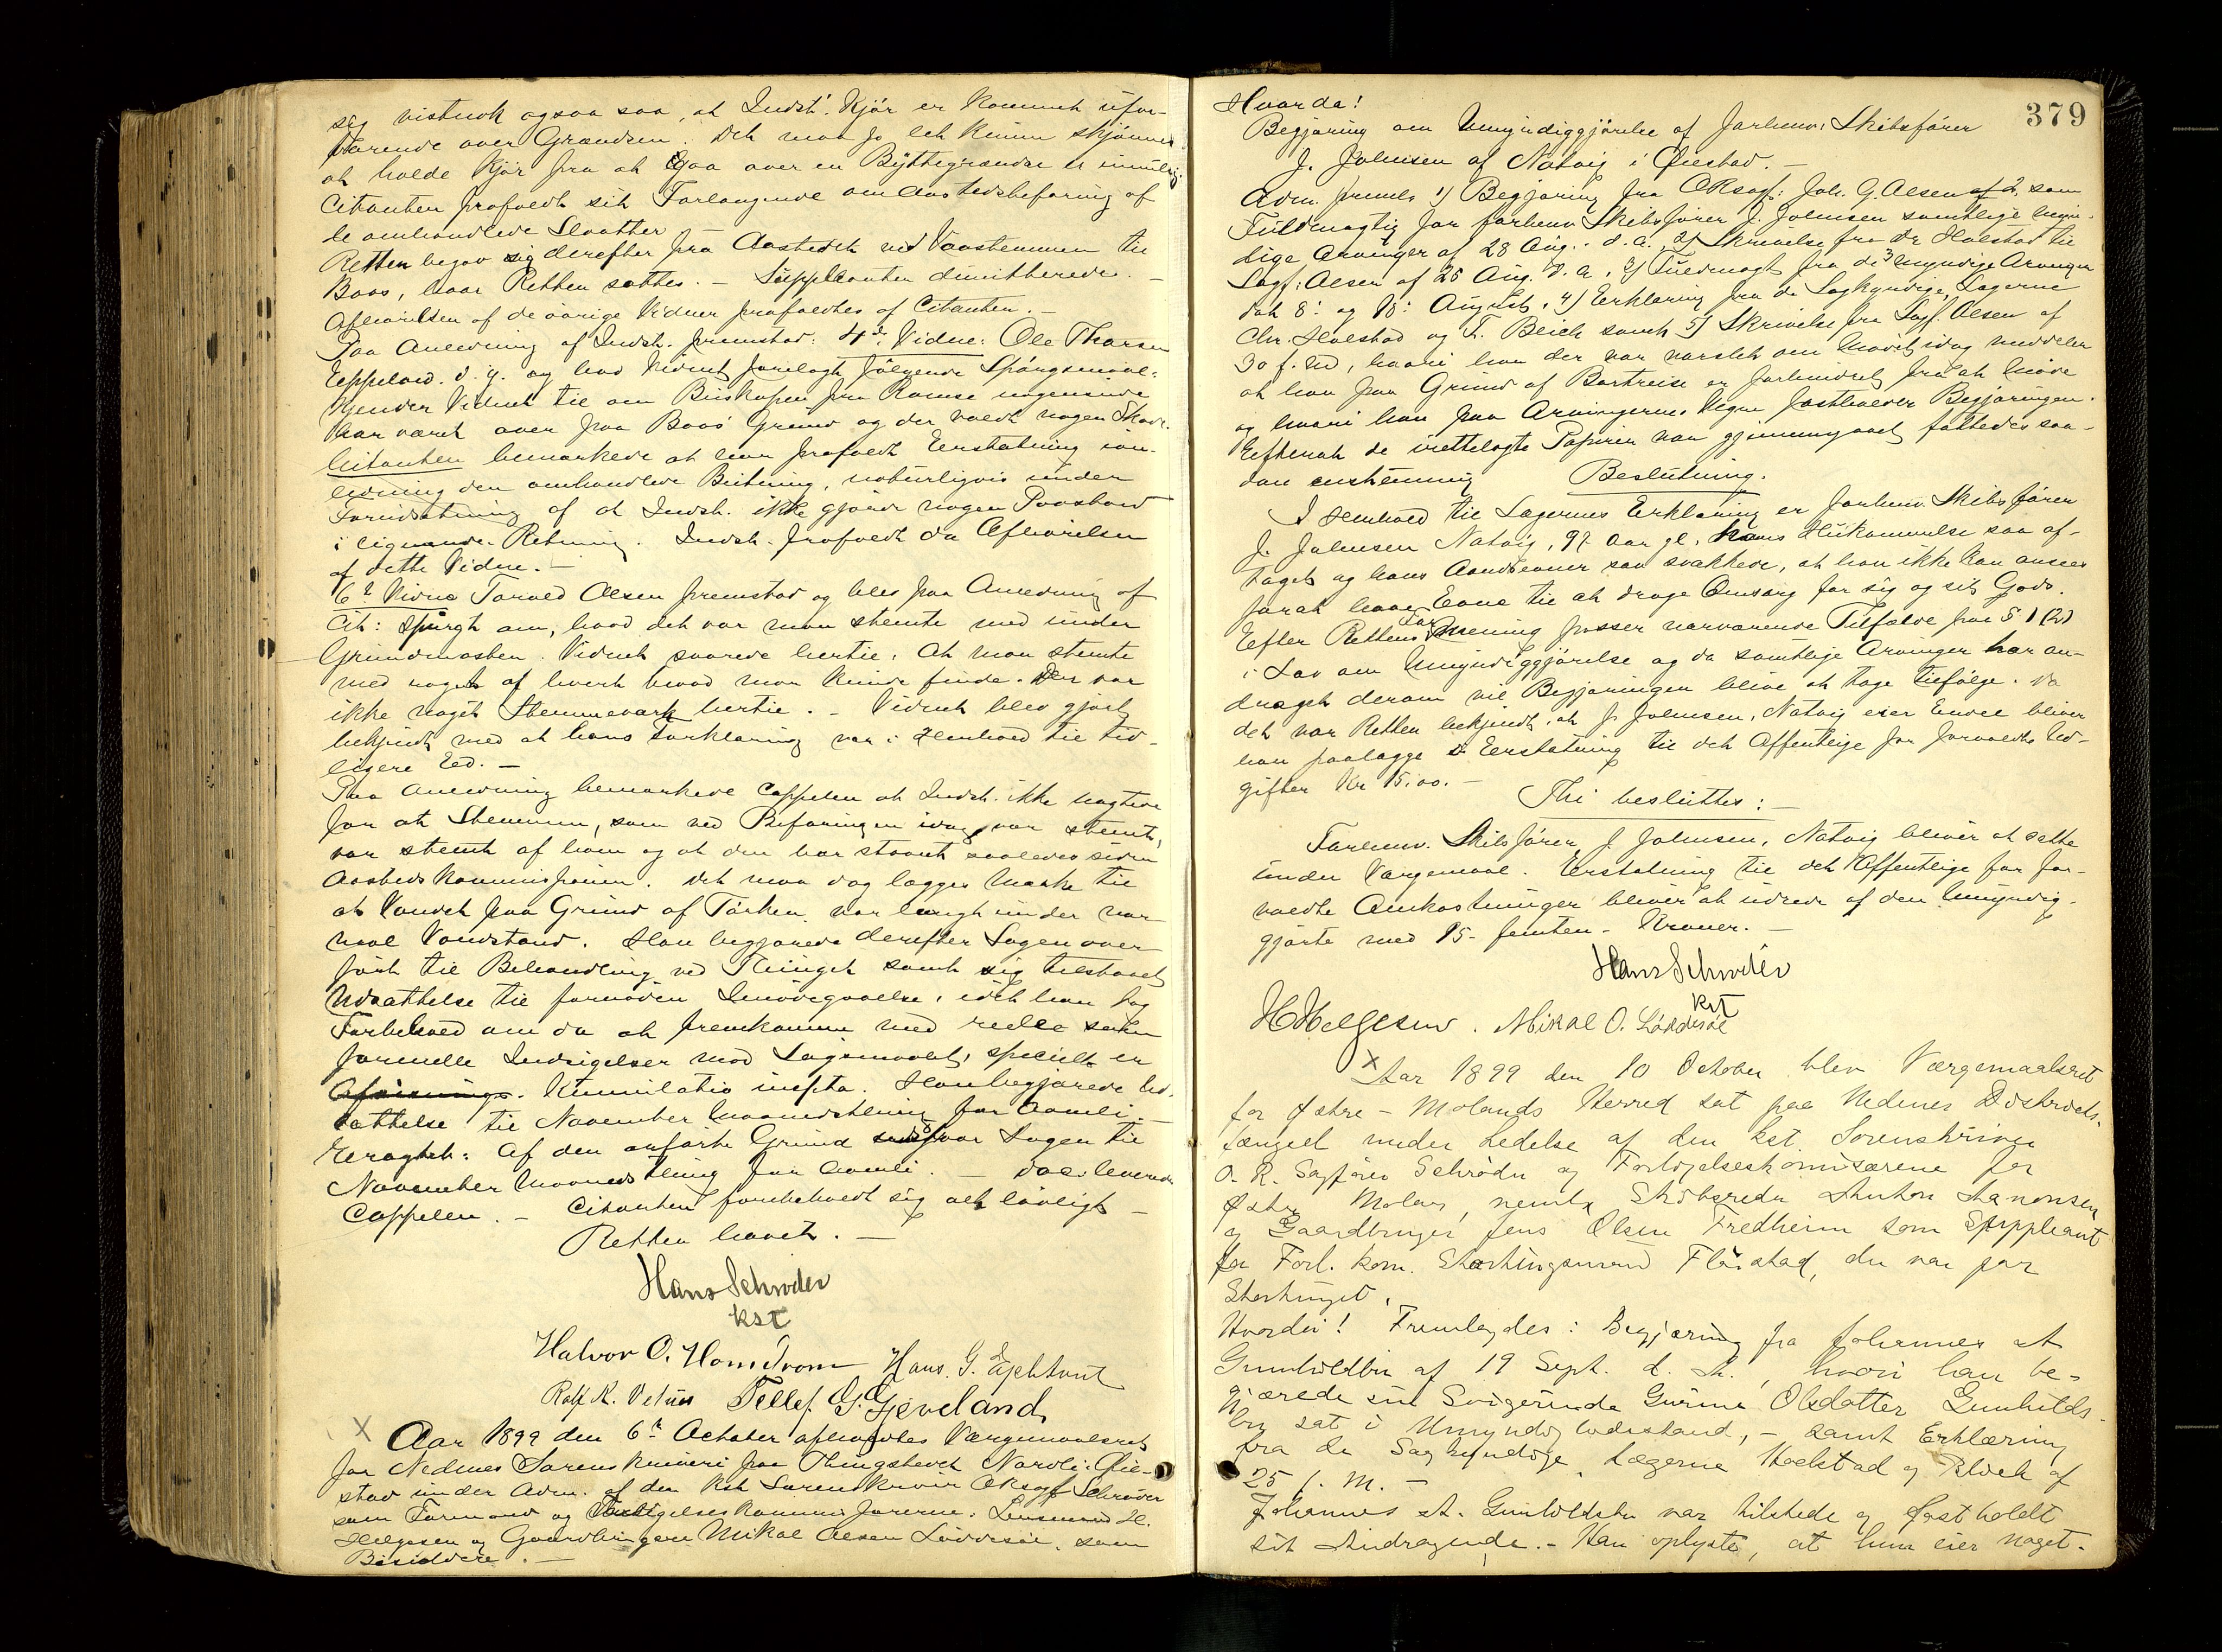 sig vistnok ogsaa saa, at Indst. Kjør er kommet ufor-
varende over Grændsen. Det maa jo let kunne skjønnes
at holde Kjør fra at gaa over en Byttegrændse er umulig.
Citanten frafaldt sit Forlangende om Aastedsbefaring af
de omhandlede Slaatter
Retten begav sig derefter fra Aastedet ved Vaastemmen til
Boos, hvor Retten sattes. – Supplianten dimitteredes. –
Afhørelsen af de øvrige Vidner frafaldtes af Citanten. –
Paa Anledning af Indst. fremstod: 4de Vidne: Ole Thorsen
Eppeland. d. y. og blev Vidnet forelagt følgende Spørgsmaal:
Kjender Vidnet til om Buskapen fra Ramse nogensinde
har været over paa Boos Grund og der voldt nogen Skade.
Citanten bemærkede at han frafaldt Erstatning an-
ledning den omhandlede Beitning, naturligvis under
Forudsætning af at Indst. ikke gjorde nogen Paastand
i lignende Retning. Indst. frafaldt da Afhørelsen
af dette Vidne. –
6te Vidne Tarald Olsen fremstod og blev paa Anledning af
Cit: spurgt om, hvad det var man stemte med under
Grundmasten. Vidnet svarede hertil: At man stemte
med noget af hvert hvad man kunde finde. Der var
ikke noget Stemmevark hertil. – Vidnet blev gjort
bekjendt med at hans Forklaring var i Henhold til tid-
ligere Ed. –
Paa Anledning bemærkede Cappelen at Indst. ikke nægtede
for at Stemmen, som ved Befaringen idag var stemt,
var stemt af ham og at den har staaet saaledes siden
Aastedskommissionen. Det maa dog lægges Mærke til
at Vandet paa Grund af Tørken var langt under nor-
mal Vandstand. Han begjærede derefter Sagen over-
ført til Behandling ved Thinget samt sig tilstaaet
Udsættelse til fornøden Imødegaaelse, idet han tog
Forbehold om da at fremkomme med reelle som
formelle Indsigelser mod Søgsmaalet, specielt en
Kumulatio inepta. Han begjærede Ud-
sættelse til November Maanedsthing for Aamli. –
Eragtet: Af den anførte Grund Sagen til
November Maaneds thing for Aamli. –
Cappelen. – Citanten forbeholdt sig alt lovligt –
Retten hævet. –
Hans Schrøder
kst
Halvor O. Homdrom Hans. G.
Rolf K. Tellef G. Gjeveland
X Aar 1899 den 6te October afholdtes Værgemaalsret
for Nedenes Sorenskriveri paa Thingstedet Narvli i Øie-
stad under Adm. af den kst Sorenskriver ORsagf Schrøder
som Formand og Forligelseskommissærerne: Lensmand H.
Helgesen og Gaardbruger Mikal Olsen Løddesøl, som
Bisiddere. –
379
Hvorda!
Begjæring om Umyndiggjørelse af forhenv. Skibsfører
J. Johnsen af Natvig i Øiestad. –
Adm. fremla 1) Begjæring fra ORsagf: Joh. G. Olsen af 2 som
Fuldmægtig for forhenv. Skibsfører J. Johnsen samtlige myn-
dige Arvinger af 28 Aug. d. a., 2) Skrivelse fra Dr Holstad til
Sagf: Olsen af 25 Aug. d. a., 3) Fuldmagt fra de 3 myndige Arvinger
dat 8: og 18: August, 4) Erklæring fra de Sagkyndige, Lægerne
Chr. Holstad og F. Beich samt 5) Skrivelse fra Sagf. Olsen af
30 f. Md, hvori han der var varslet om Mødet idag meddeler
at han paa Grund af Bortreise er forhindret fra at møde
og hvori han paa Arvingernes Vegne fastholder Begjæringen.
Efterat de irettelagte Papirer var gjennemgaaet fattedes saa-
dan enstemmig Beslutning.
I Henhold til Lægernes Erklæring er forhenv. Skibsfører
J. Johnsen Natvig, 97 Aar gl., hans Hukommelse saa af-
taget og hans Aandsevner saa svækkede, at han ikke kan ansees
for at have Evne til at drage Omsorg for sig og sit Gods.
Efter Rettens Formening passer nærværende Tilfælde paa § 1 (2)
i Lov om Umyndiggjørelse og da samtlige Arvinger har an-
draget derom vil Begjæringen blive at tage tilfølge. Da
det var Retten bekjendt, at J. Johnsen, Natvig eier Endel bliver
han paalægge Erstatning til det Offentlige for forvoldte Ud-
gifter Kr 15.00. –
Thi besluttes: –
Forhenv. Skibsfører J. Johnsen, Natvig bliver at sætte
under Værgemaal. Erstatning til det Offentlige for for-
voldte Omkostninger bliver at udrede af den Umyndig-
gjorte med 15 – femten – Kroner. –
Hans Schrøder
kst
H Helgesen. Mikal O. Løddesøl
X Aar 1899 den 10 October blev Værgemaalsret
for Østre – Molands Herred sat paa Nedenes Distrikts-
fængsel under Ledelse af den kst. Sorenskriver
O. R. Sagfører Schrøder og Forligelseskommisærene for
Østre Moland, nemlig Skibsreder Anton Aanonsen
og Gaardbruger Jens Olsen Fredheim som Suppleant
for Forl. kom. Storthingsmand Fløistad, der var paa
Storthinget.
Hvorda! Fremlagdes: Begjæring fra Johannes A.
Gunhildbu af 19 Sept. d. A., hvori han be-
gjærede sin Svigerinde Gurine Olsdatter Gunhilds-
bu sat i Umyndighedsstand, – samt Erklæring
fra de Sagkyndige, Lægerne Holstad og Block af
25 f. M. –
Johannes A. Gunhildsbu var tilstede og fastholdt
sit Andragende. – Han oplyste, at hun eier noget.